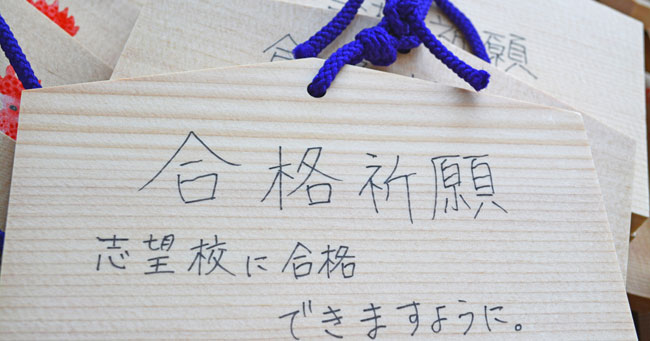 合格祈願
志望校に合格
できますように。
願